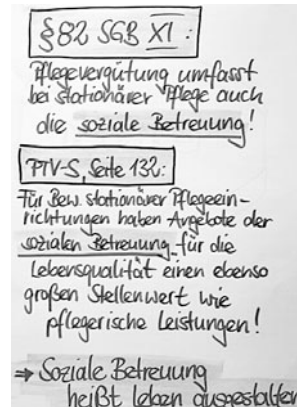 §82 SGB XI :
Pflegevergütung umfasst
bei stationärer Pflege auch
die soziale Betreuung!
PTV-S, Seite 132:
Für Bew. stationärer Pflegeein-
richtungen haben Angebote der
sozialen Betreuung für die
Lebensqualität einen ebenso
großen Stellenwert wie
pflegerische Leistungen!
⇒ Soziale Betreuung
heißt Leben ausgestalten